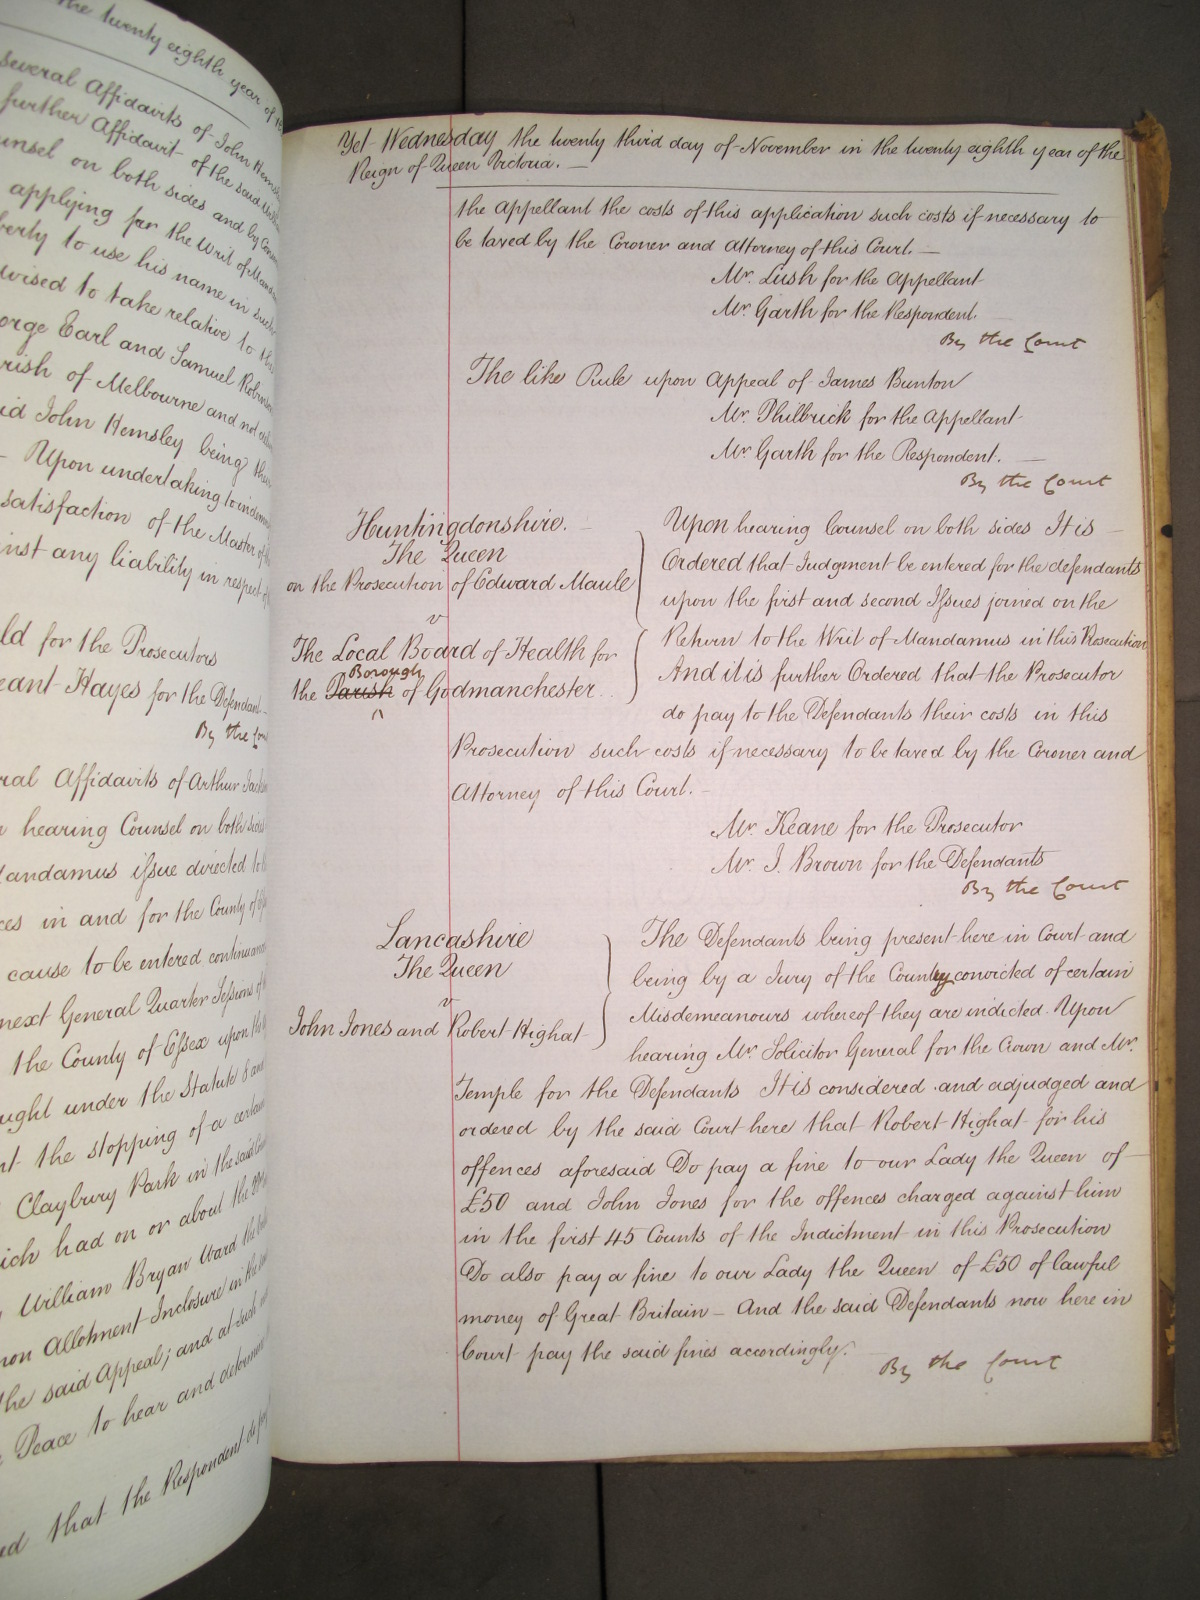 the twenty eighth year of
several Affidavits of John Hemsley
further Affidavit of the said
unsel on both sides and by Consent
applying for the Writ of Mandamus
berty to use his name in such
vised to take relative to this
orge Earl and Samuel Robinson
rish of Melbourne and not
id John Hemsley being
Upon undertaking to indemnify
satisfaction of the Master of
inst any liability in respect of
ld for the Prosecutors
eant Hayes for the Defendant
By the Court
ral Affidavits of Arthur Jackson
hearing Counsel on both sides
andamus issue directed to
ces in and for the County of Essex
cause to be entered continuances
next General Quarter Sessions of
the County of Essex upon the
ught under the Statute 8 and
nt the stopping of a certain
Claybury Park in the said
ich had on or about the
William Bryan Ward the
mon Allotment Inclosure in the
the said Appeal; and at such
Peace to hear and determine
ed that the Respondent do pay
Yet Wednesday the twenty third day of November in the twenty eighth year of the
Reign of Queen Victoria.
the Appellant the costs of this application such costs if necessary to
be taxed by the Coroner and Attorney of this Court.
Mr. Lush for the Appellant
Mr. Garth for the Respondent.
By the Court
The like Rule upon Appeal of James Bunton
Mr. Philbrick for the Appellant
Mr. Garth for the Respondent.
By the Court
Huntingdonshire.
The Queen
on the Prosecution of Edward Maule
v
The Local Board of Health for
Borough
the Parish of Godmanchester
Upon hearing Counsel on both sides It is
Ordered that Judgment be entered for the defendants
upon the first and second Issues joined on the
Return to the Writ of Mandamus in this Prosecution
And it is further Ordered that the Prosecutor
do pay to the Defendants their costs in this
Prosecution such costs if necessary to be taxed by the Coroner and
Attorney of this Court.
Mr. Keane for the Prosecutor
Mr. J. Brown for the Defendants
By the Court
Lancashire
The Queen
v
John Jones and Robert Highat
The Defendants being present here in Court and
being by a Jury of the County convicted of certain
Misdemeanours whereof they are indicted. Upon
hearing Mr. Solicitor General for the Crown and Mr.
Temple for the Defendants It is considered and adjudged and
ordered by the said Court here that Robert Highat for his
offences aforesaid Do pay a fine to our Lady the Queen of
£50 and John Jones for the offences charged against him
in the first 45 Counts of the Indictment in this Prosecution
Do also pay a fine to our Lady the Queen of £50 of lawful
money of Great Britain – And the said Defendants now here in
Court pay the said fines accordingly.
By the Court